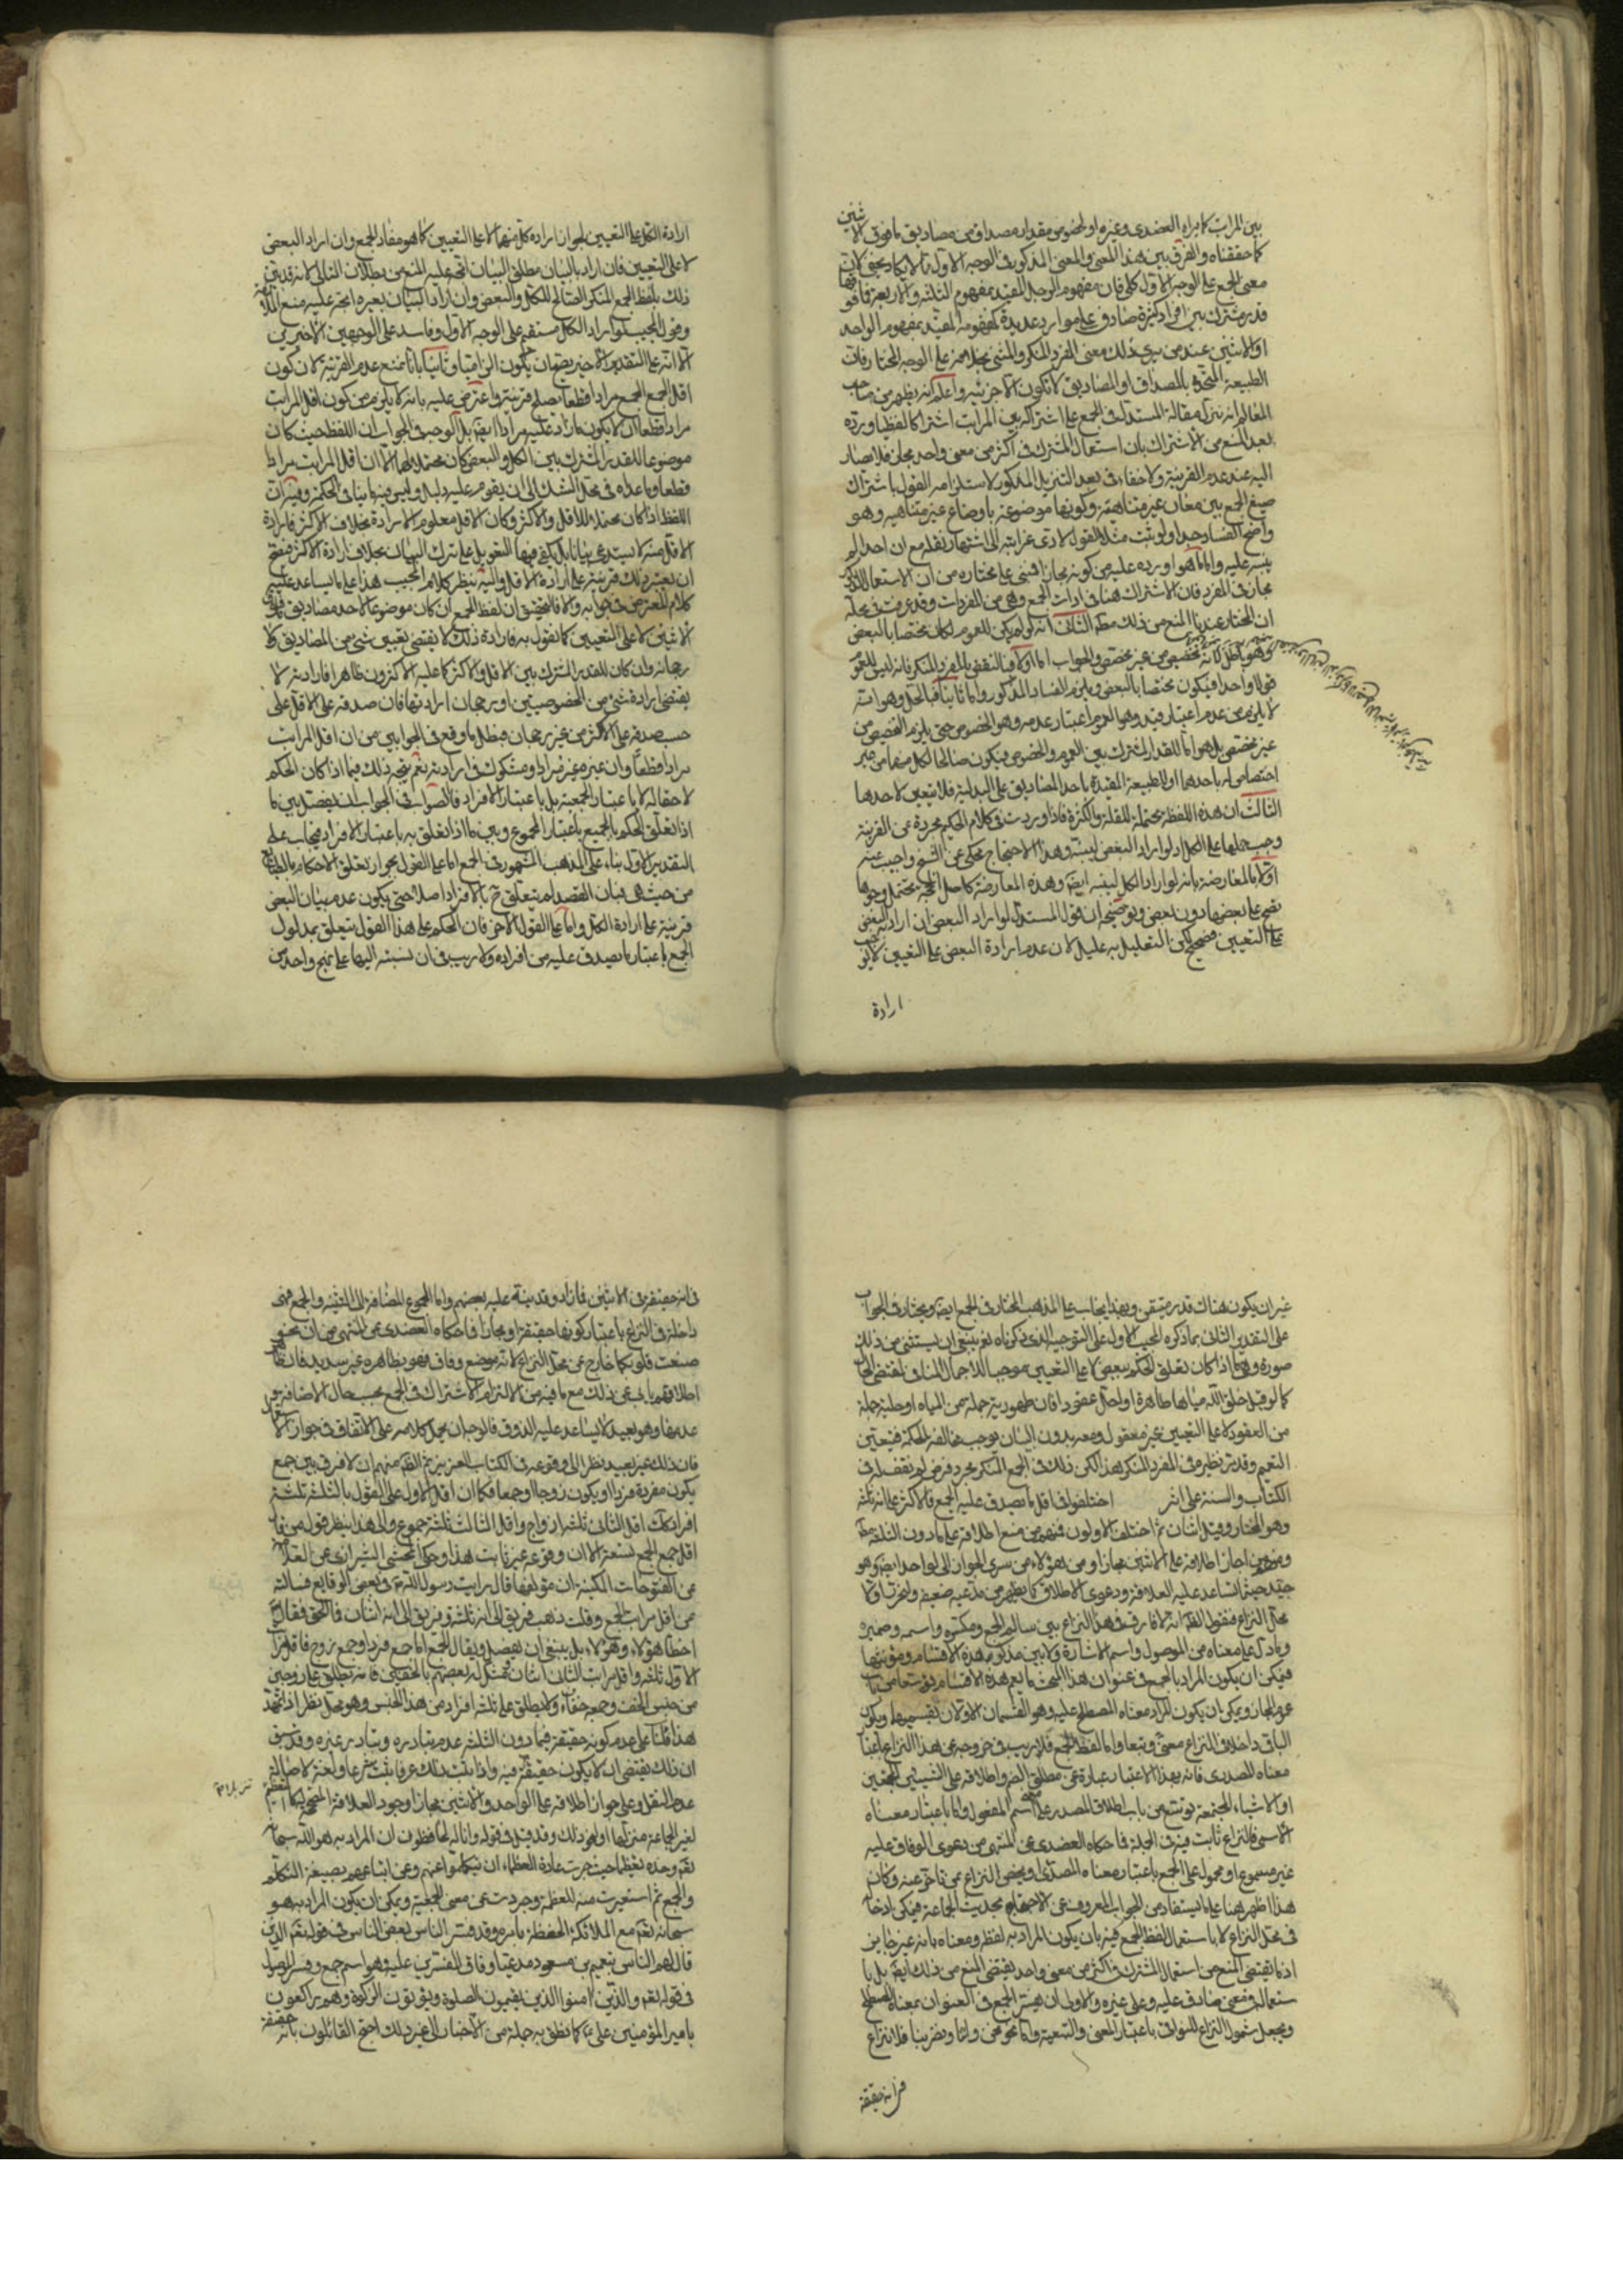 بين المراتب كما يراه العضدى وغيره او لخصوص مقدار مصداق من مصاديق ما فوق الاثنين
كما حققناه والفرق بين هذا المعنى والمعنى المذكور فى الوجه الاول مما لا يكاد يخفى لان
معنى الجمع على الوجه الاول كلى فان مفهوم الرجل المقيد بمفهوم الثلثة والاربعة فما فوقها
قدر مشترك بين افراد كثيرة صادق على موارد عديدة كمفهومه المقيد بمفهوم الواحد
او الاثنين عند من يرى ذلك معنى المفرد المنكر والمثنى بخلافه على الوجه المختار فان
الطبيعة المتحدة بالمصداق او المصاديق لا تكون الا جزئية واعلم انه يظهر من صاحب
المعالم انه نزل مقالة المستدل فى الجمع على اشتراكه بين المراتب اشتراكا لفظيا ورده
بعد المنع من الاشتراك بان استعمال المشترك فى اكثر من معنى واحد مجاز فلا يصار
اليه عند عدم القرينة ولا خفاء فى بعد التنزيل المذكور لاستلزامه القول باشتراك
صيغ الجمع بين معان غير متناهية وكونها موضوعة باوضاع غير متناهية وهو
واضح الفساد جدا ولو ثبت مثل هذا القول لادى غرابته الى اشتهار نقله مع ان احدا لم
ينسبه عليه واما ما اورده عليه من كونه مجازا فمبنى على مختاره من ان الاستعمال المذكور
مجاز فى المفرد فان الاشتراك هنا فى ادات الجمع وهى من المفردات وقد عرفت فى محله
ان المختار عندنا المنع من ذلك مطلقا الثانى انه لو لم يكن للعموم لكان مختصا بالبعض
وهو باطل لانه تخصيص من غير مخصص والجواب اما اولا فبالنقض بالمفرد المنكر فانه ليس للعموم
قولا واحدا فيكون مختصا بالبعض ويلزم الفساد المذكور واما ثانيا فبالحل وهو انه
لا يلزم من عدم اعتبار قيد وهو العموم اعتبار عدمه وهو الخصوص حتى يلزم التخصيص من
غير مخصص بل هو اما للقدر المشترك بين العموم والخصوص فيكون صالحا لكل منهما من غير
اختصاص له باحدهما او للطبيعة المقيدة باحد المصاديق على البدلية فلا يتعين لاحدها
الثالث ان هذه اللفظة محتملة للقلة والكثرة فاذا وردت فى كلام الحكيم مجردة عن القرينة
وجب حملها على الكل اذ لو اراد البعض لبينه وهذا الاحتجاج محكى عن الشيخ واجيب عنه
اولا بالمعارضة بانه لو اراد الكل لبينه ايضا وهذه المعارضة كاصل الحجة تحتمل وجوها
يصح على بعضها دون بعض وتوضيحه ان قول المستدل لو اراد البعض ان اراد به البعض
على التعيين فصحيح لكن التعليل به عليل لان عدم ارادة البعض على التعيين لا يوجب
ارادة
ارادة الكل على التعيين لجواز ارادة كل منهما لا على التعيين كما هو مفاد الجمع وان اراد البعض
لا على التعيين فان اراد بالبيان مطلق البيان اتجه عليه المنع من بطلان التالى لانه قد بين
ذلك بلفظ الجمع المنكر الصالح للكل والبعض وان اراد البيان بغيره اتجه عليه منع الملازمة
وقول المجيب لو اراد الكل مستقيم على الوجه الاول وفاسد على الوجهين الاخيرين
الا انه على التقدير الاخير يصح ان يكون الزاميا وثانيا بانا نمنع عدم القرينة لان كون
اقل الجمع مرادا قطعا يصلح قرينة واعترض عليه بانه لا يلزم من كون اقل المراتب
مرادا قطعا ان لا يكون ما زاد عليه مرادا ايضا بل الوجه فى الجواب ان اللفظ حيث كان
موضوعا للقدر المشترك بين الكل والبعض كان محتملا لهما الا ان اقل المراتب مراد
قطعا وما عداه فى محل الشك الى ان يقوم عليه دليل وليس فيه ما ينافى الحكمة وفيه ان
اللفظ اذا كان محتملا للاقل والاكثر وكان الاقل معلوم الارادة بخلاف الاكثر فارادة
الاقل منه لا يستدعى بيانا بل يكفى فيها التعويل على ترك البيان بخلاف ارادة الاكثر فيصح
ان يعتبر ذلك قرينة على ارادة الاقل واليه ينظر كلام المجيب هذا على ما يساعد عليه
كلام المعترض فى جوابه والا فالتحقيق ان لفظ الجمع ان كان موضوعا لاحد مصاديق ما فوق
الاثنين لا على التعيين كما نقول به فارادة ذلك لا يقتضى تعيين شئ من المصاديق ولا
رجحانه وان كان للقدر المشترك بين الاقل والاكثر كما عليه الاكثرون ظاهرا فارادته لا
يقتضى ارادة شئ من الخصوصيتين او رجحان ارادتها فان صدقه على الاقل على
حسب صدقه على الاكثر من غير رجحان فبطل ما وقع فى الجوابين من ان اقل المراتب
مراد قطعا وان غيره غير مراد او مشكوك فى ارادته نعم يتجه ذلك فيما اذا كان الحكم
لاحقا له لا باعتبار الجمعية بل باعتبار الافراد فالصواب فى الجواب ان يفصل بين ما
اذا تعلق الحكم بالجميع باعتبار المجموع وبين ما اذا تعلق به باعتبار الافراد فيجاب على
التقدير الاول بناء على المذهب المشهور فى الجمع اما على القول بجواز تعلق الاحكام بالطبائع
من حيث هى فبان القصد لم يتعلق ح بالافراد اصلا حتى يكون عدم بيان البعض
قرينة على ارادة الكل واما على القول الاخر فان الحكم على هذا القول يتعلق بمدلول
الجمع باعتبار ما يصدق عليه من افراده ولا ريب فى ان نسبته اليها على نهج واحد من
غير ان يكون هناك قدر متيقن وبهذا يجاب على المذهب المختار فى الجمع ايضا ويختار فى الجواب
على التقدير الثانى بما ذكره المجيب الاول على التوجيه الذى ذكرناه نعم ينبغى ان يستثنى من ذلك
صورة وهى ما اذا كان تعلق الحكم ببعض لا على التعيين موجبا للاجمال المنافى لمقتضى الحال
كما لو قيل خلق الله مياها طاهرة او احل عقودا فان طهورية جملة من المياه او حلية جملة
من العقود لا على التعيين غير معقول ومعه بدون البيان يوجب مخالفة الحكمة فيتعين
التعميم وقد مر نظيره فى المفرد المنكر هذا لكن ذلك فى الجمع المنكر مجرد فرض لم نقف له فى
الكتاب والسنة على اثر اختلفوا فى اقل ما يصدق عليه الجمع فالاكثر على انه ثلثة
وهو المختار وقيل اثنان ثم اختلف الاولون فمنهم من منع اطلاقه على ما دون الثلثة مطلقا
ومنهم من اجاز اطلاقه على الاثنين مجازا ومن هؤلاء من سرى الجواز الى الواحد ايضا وهو
جيد حيثما تساعد عليه العلاقة ودعوى الاطلاق كما يظهر من مدعيه ضعيفة ولنحرر اولا
محل النزاع فنقول الظاهر انه لا فارق فى هذا النزاع بين سالم الجمع ومكسره واسمه وضميره
وما دل على معناه من الموصول واسم الاشارة ولا بين مذكر هذه الاقسام ومؤنثها
فيمكن ان يكون المراد بالجمع فى عنوان هذا المبحث ما يعم هذه الاقسام توسعا من باب
عموم المجاز ويمكن ان يكون المراد معناه المصطلح عليه وهو القسمان الاولان بقسميهما ويكون
الباقى داخلا فى النزاع معنى وتبعا واما لفظ الجمع فلا ريب فى خروجه عن هذا النزاع باعتبار
معناه المصدرى فانه بهذا الاعتبار عبارة عن مطلق الضم واطلاقه على الشيئين المجتمعين
او الاشياء المجتمعة توسع من باب اطلاق المصدر على اسم المفعول واما باعتبار معناه
الاسمى فالنزاع ثابت فيه فى الجملة فما حكاه العضدى عن المنتهى من دعوى الوفاق عليه
غير مسموع او محمول على الجمع باعتبار معناه المصدرى او يختص النزاع بمن تاخر عنه وكان
هذا اظهر هنا على ما يستفاد من الجواب المعروف عن الاحتجاج بحديث الجماعة فيمكن ادخاله
فى محل النزاع لا باستعمال لفظ الجمع فيه بان يكون المراد به لفظه ومعناه فانه غير جائز
اذ ما يقتضى المنع من استعمال المشترك فى اكثر من معنى واحد يقتضى المنع من ذلك ايضا بل با
ستعماله فى معنى صادق عليه وعلى غيره والاولى ان يفسر الجمع فى العنوان بمعناه المصطلح
ويجعل شمول النزاع للبواقى باعتبار المعنى والتبعية واما نحو نحن وانا وضربنا فلا نزاع
فى انه حقيقة
فى انه حقيقة فى الاثنين فما زاد وقد ينبه عليه بعضهم واما الجموع المضافة الى التثنية والجمع فهى
داخلة فى النزاع باعتبار كونها حقيقة او مجازا فما حكاه العضدى عن المنتهى من ان نحو
صغت قلوبكما خارج عن محل النزاع لانه موضع وفاق فهو بظاهره غير سديد فان ظاهر
اطلاقهم يابى عن ذلك مع ما فيه من الالتزام الاشتراك فى الجمع بحسب حال الاضافة و
عدمها وهو بعيد لا يساعد عليه الذوق فالوجه ان يحمل كلامه على الاتفاق فى جواز الاستعمال
فان ذلك غير بعيد نظرا الى وقوعه فى الكتاب العزيز ثم الظاهر منهم ان لا فرق بين جمع
يكون مفرده فردا او يكون زوجا او جمعا فكما ان اقل الاول على القول بالثلثة ثلثة
افراد كك اقل الثانى ثلثة ازواج واقل الثالث ثلثة جموع والى هذا ينظر قول من قال
اقل جمع الجمع تسعة الا ان وقوعه غير ثابت هذا وحكى المحشى الشيرازى عن العلامة
عن الفتوحات المكية ان مؤلفها قال رايت رسول الله ص فى بعض الوقايع فسالته
عن اقل مراتب الجمع وقلت ذهب فريق الى انه ثلثة وفريق الى انه اثنان فما الحق فقال ص
اخطا هؤلاء وهؤلاء بل ينبغى ان يفصل ويقال الجمع اما جمع فرد او جمع زوج فاقل مراتب
الاول ثلثة واقل مراتب الثانى اثنان فمثل له بعضهم بالخفين فانه يطلق على زوجين
من جنس الخف وجمعه خفاف ولا يطلق على ثلثة افراد من هذا الجنس وهو محل نظر اذا تمهد
هذا فلنا على عدم كونه حقيقة فيما دون الثلثة عدم تبادره وتبادر غيره وقد سبق
ان ذلك يقتضى ان لا يكون حقيقة فيه واذا ثبت ذلك عرفا ثبت شرعا ولغة لاصالة
عدم النقل وعلى جواز اطلاقه على الواحد والاثنين مجازا وجود العلاقة المصححة كما
لغير الجماعة منزلتها او نحو ذلك وقد قيل فى قوله وانا له لحافظون ان المراد به هو الله سبحانه
تعالى وحده تعظيما حيث جرت عادة العظماء ان يتكلموا عنهم وعن اتباعهم بصيغة التكلم
والجمع ثم استعيرت منه للعظمة وجردت عن معنى الجمعية ويمكن ان يكون المراد به هو
سبحانه تعالى مع الملائكة الحفظة بامره وقد فسر الناس بعض الناس فى قوله تعالى الذين
قال لهم الناس بنعيم بن مسعود مدعيا وفاق المفسرين عليه وهو اسم جمع وفسر الموصول
فى قوله تعالى والذين امنوا الذين يقيمون الصلوة ويؤتون الزكوة وهم راكعون
بامير المؤمنين على ع كما نطق به جملة من الاخبار الى غير ذلك احتج القائلون بانه حقيقة